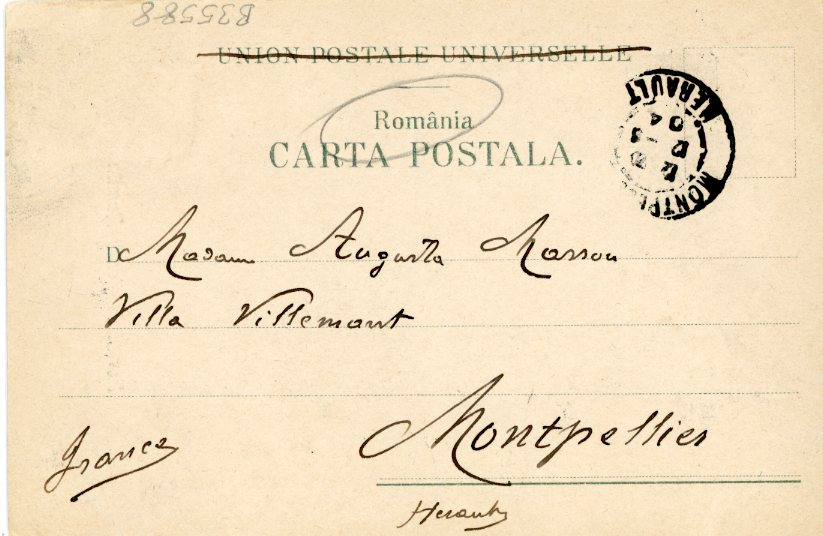 B35588
UNION POSTALE UNIVERSELLE
România
CARTA POSTALA.
MONTPELLIER HERAULT
12 -3
04
D Madame Augusta Masson
Villa Villemant
Montpellier
France
Herault